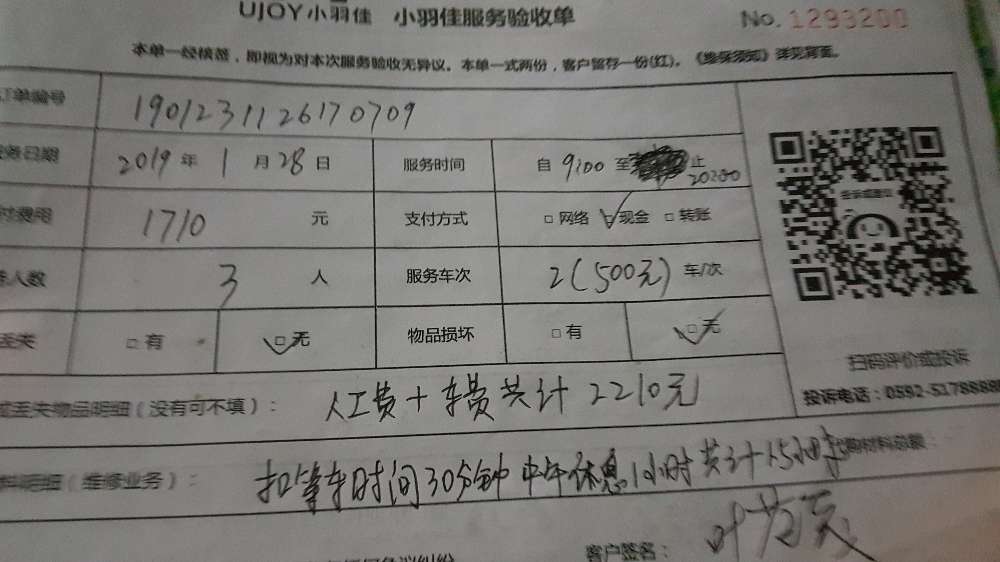 UJOY小羽佳 小羽佳服务验收单 No. 1293200
本单一经核签，即视为对本次服务验收无异议。本单一式两份，客户留存一份(红)。《维保须知》详见背面。
订单编号 1901231126170709
服务日期 2019 年 1 月 28 日 服务时间 自 9:00 至 止 20:00
付费用 1710 元 支付方式 □ 网络 □ 现金 □ 转账
人数 3 人 服务车次 2(500元) 车/次
丢失 □ 有 □ 无 物品损坏 □ 有 □ 无
扫码评价或投诉
投诉电话：0592-5178888
丢失物品明细（没有可不填）： 人工费+车费共计 2210元
料明细（维修业务）： 扣等车时间30分钟 中午休息1小时 共计1.5小时 购材料总额：
客户签名：